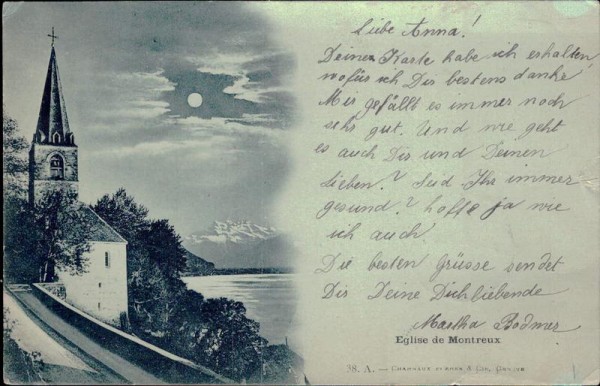 Liebe Anna!
Deinen Karte habe ich erhalten
wofür ich Dir bestens danke
Mir gefällt es immer noch
sehr gut. Und wie geht
es auch Dir und Deinen
Lieben? Sid Ihr immer
gesund? hoffe ja wie
ich auch
Die besten Grüsse sendet
Dir Deine Dichliebende
Martha Bodmer
Eglise de Montreux
38. A. —